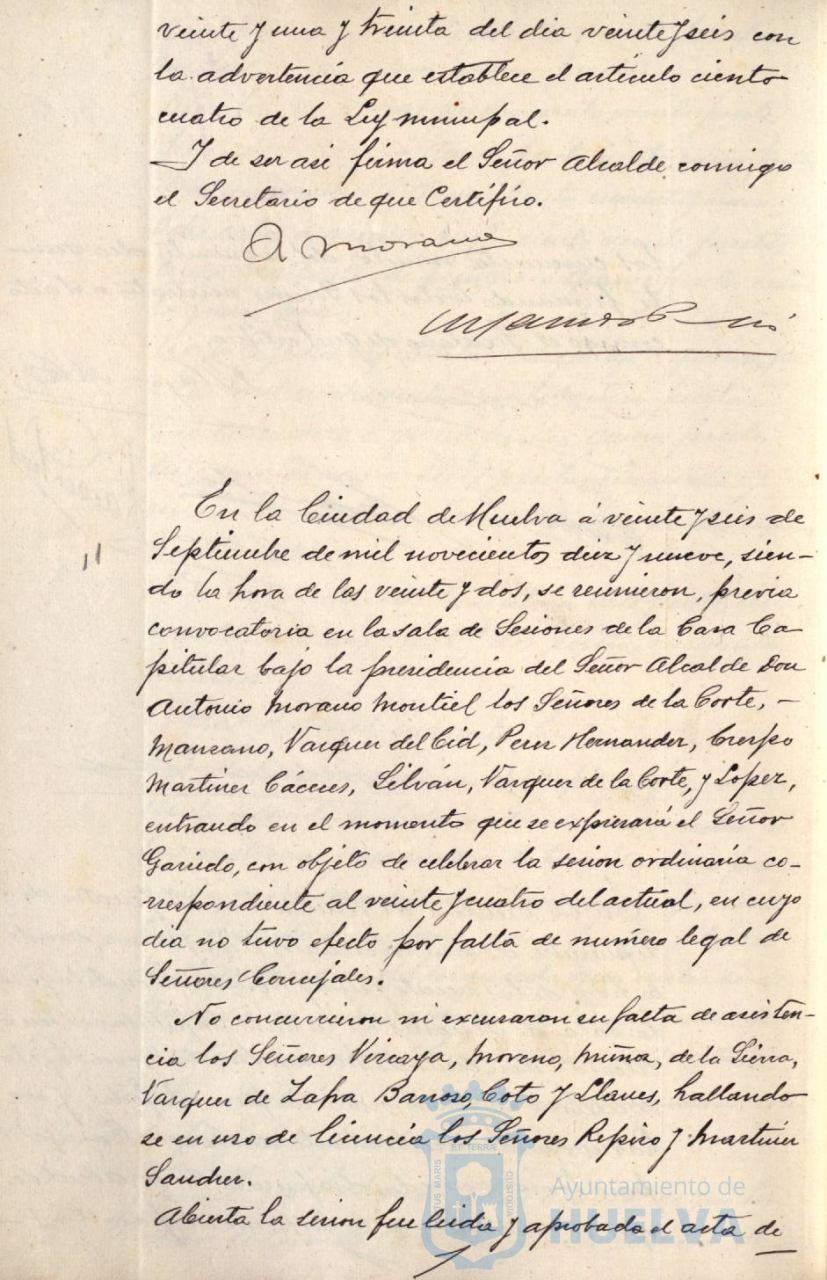 veinte y una y treinta del dia veinte y seis con
la advertencia que establece el artículo ciento
cuatro de la Ley municipal.
Y de ser asi firma el Señor Alcalde conmigo
el Secretario de que Certifico.
A Morano
En la Ciudad de Huelva á veinte y seis de
Septiembre de mil novecientos diez y nueve, sien-
do la hora de las veinte y dos, se reunieron, previa
convocatoria en la sala de Sesiones de la Casa Ca-
pitular bajo la presidencia del Señor Alcalde Don
Antonio Morano Montiel los Señores de la Corte, -
Manzano, Vazquez del Cid, Perez Hernandez, Crespo
Martinez Cáceres, Silván, Vazquez de la Corte, y Lopez,
entrando en el momento que se expresará el Señor
Garrido, con objeto de celebrar la sesion ordinaria co-
rrespondiente al veinte y cuatro del actual, en cuyo
dia no tuvo efecto por falta de número legal de
Señores Concejales.
No concurrieron ni excusaron su falta de asisten-
cia los Señores Vizcaya, Moreno, Muñoz, de la Sierra,
Vazquez de Zafra Barroso, Coto y Llanes, hallando
se en uso de licencia los Señores Repiso y Martinez
Sanchez.
Abierta la sesion fue leida y aprobada el acta de
Ayuntamiento de
HUELVA